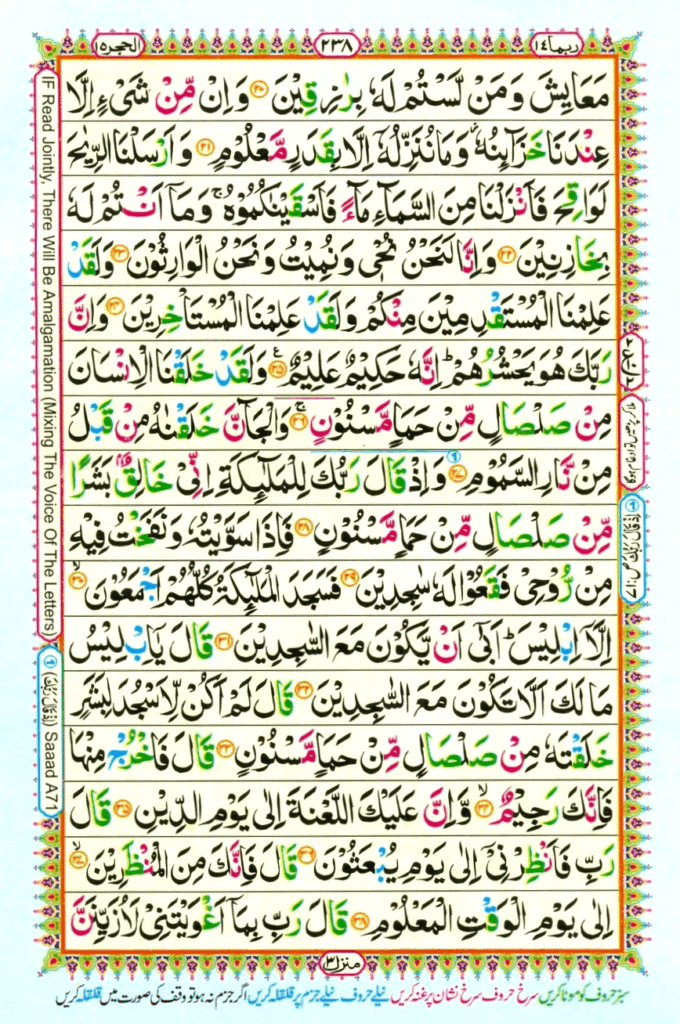 ربما ١٤
٢٣٨
الحجر ١٥
مَعَايِشَ وَمَنْ لَّسْتُمْ لَهٗ بِرٰزِقِيْنَ ﴿٢٠﴾ وَاِنْ مِّنْ شَيْءٍ اِلَّا
عِنْدَنَا خَزَآئِنُهٗ وَمَا نُنَزِّلُهٗٓ اِلَّا بِقَدَرٍ مَّعْلُوْمٍ ﴿٢١﴾ وَاَرْسَلْنَا الرِّيٰحَ
لَوَاقِحَ فَاَنْزَلْنَا مِنَ السَّمَآءِ مَآءً فَاَسْقَيْنٰكُمُوْهُ ۚ وَمَآ اَنْتُمْ لَهٗ
بِخَازِنِيْنَ ﴿٢٢﴾ وَاِنَّا لَنَحْنُ نُحْيٖ وَنُمِيْتُ وَنَحْنُ الْوَارِثُوْنَ ﴿٢٣﴾ وَلَقَدْ
عَلِمْنَا الْمُسْتَقْدِمِيْنَ مِنْكُمْ وَلَقَدْ عَلِمْنَا الْمُسْتَاْخِرِيْنَ ﴿٢٤﴾ وَاِنَّ
رَبَّكَ هُوَ يَحْشُرُهُمْ ؕ اِنَّهٗ حَكِيْمٌ عَلِيْمٌ ﴿٢٥﴾ وَلَقَدْ خَلَقْنَا الْاِنْسَانَ
مِنْ صَلْصَالٍ مِّنْ حَمَاٍ مَّسْنُوْنٍ ﴿٢٦﴾ وَالْجَآنَّ خَلَقْنٰهُ مِنْ قَبْلُ
مِنْ نَّارِ السَّمُوْمِ ﴿٢٧﴾ وَاِذْ قَالَ رَبُّكَ لِلْمَلٰٓئِكَةِ اِنِّيْ خَالِقٌۢ بَشَرًا
مِّنْ صَلْصَالٍ مِّنْ حَمَاٍ مَّسْنُوْنٍ ﴿٢٨﴾ فَاِذَا سَوَّيْتُهٗ وَنَفَخْتُ فِيْهِ
مِنْ رُّوْحِيْ فَقَعُوْا لَهٗ سٰجِدِيْنَ ﴿٢٩﴾ فَسَجَدَ الْمَلٰٓئِكَةُ كُلُّهُمْ اَجْمَعُوْنَ ﴿٣٠﴾ ۙ
اِلَّآ اِبْلِيْسَ ؕ اَبٰٓى اَنْ يَّكُوْنَ مَعَ السّٰجِدِيْنَ ﴿٣١﴾ قَالَ يٰٓاِبْلِيْسُ
مَا لَكَ اَلَّا تَكُوْنَ مَعَ السّٰجِدِيْنَ ﴿٣٢﴾ قَالَ لَمْ اَكُنْ لِّاَسْجُدَ لِبَشَرٍ
خَلَقْتَهٗ مِنْ صَلْصَالٍ مِّنْ حَمَاٍ مَّسْنُوْنٍ ﴿٣٣﴾ قَالَ فَاخْرُجْ مِنْهَا
فَاِنَّكَ رَجِيْمٌ ﴿٣٤﴾ ۙ وَّاِنَّ عَلَيْكَ اللَّعْنَةَ اِلٰى يَوْمِ الدِّيْنِ ﴿٣٥﴾ قَالَ
رَبِّ فَاَنْظِرْنِيْٓ اِلٰى يَوْمِ يُبْعَثُوْنَ ﴿٣٦﴾ قَالَ فَاِنَّكَ مِنَ الْمُنْظَرِيْنَ ﴿٣٧﴾ ۙ
اِلٰى يَوْمِ الْوَقْتِ الْمَعْلُوْمِ ﴿٣٨﴾ قَالَ رَبِّ بِمَآ اَغْوَيْتَنِيْ لَاُزَيِّنَنَّ
منزل ٣
سبز حروف کو موٹا کریں سرخ حروف سرخ نشان پر غنہ کریں نیلے حروف نیلے جزم پر قلقلہ کریں اگر جزم نہ ہو تو وقف کی صورت میں قلقلہ کریں
IF Read Jointly, There Will Be Amalgamation (Mixing The Voice Of The Letters)
(اِذْ قَالَ رَبُّكَ) Saaad A71
اِذْ قَالَ رَبُّكَ ص: ٧١